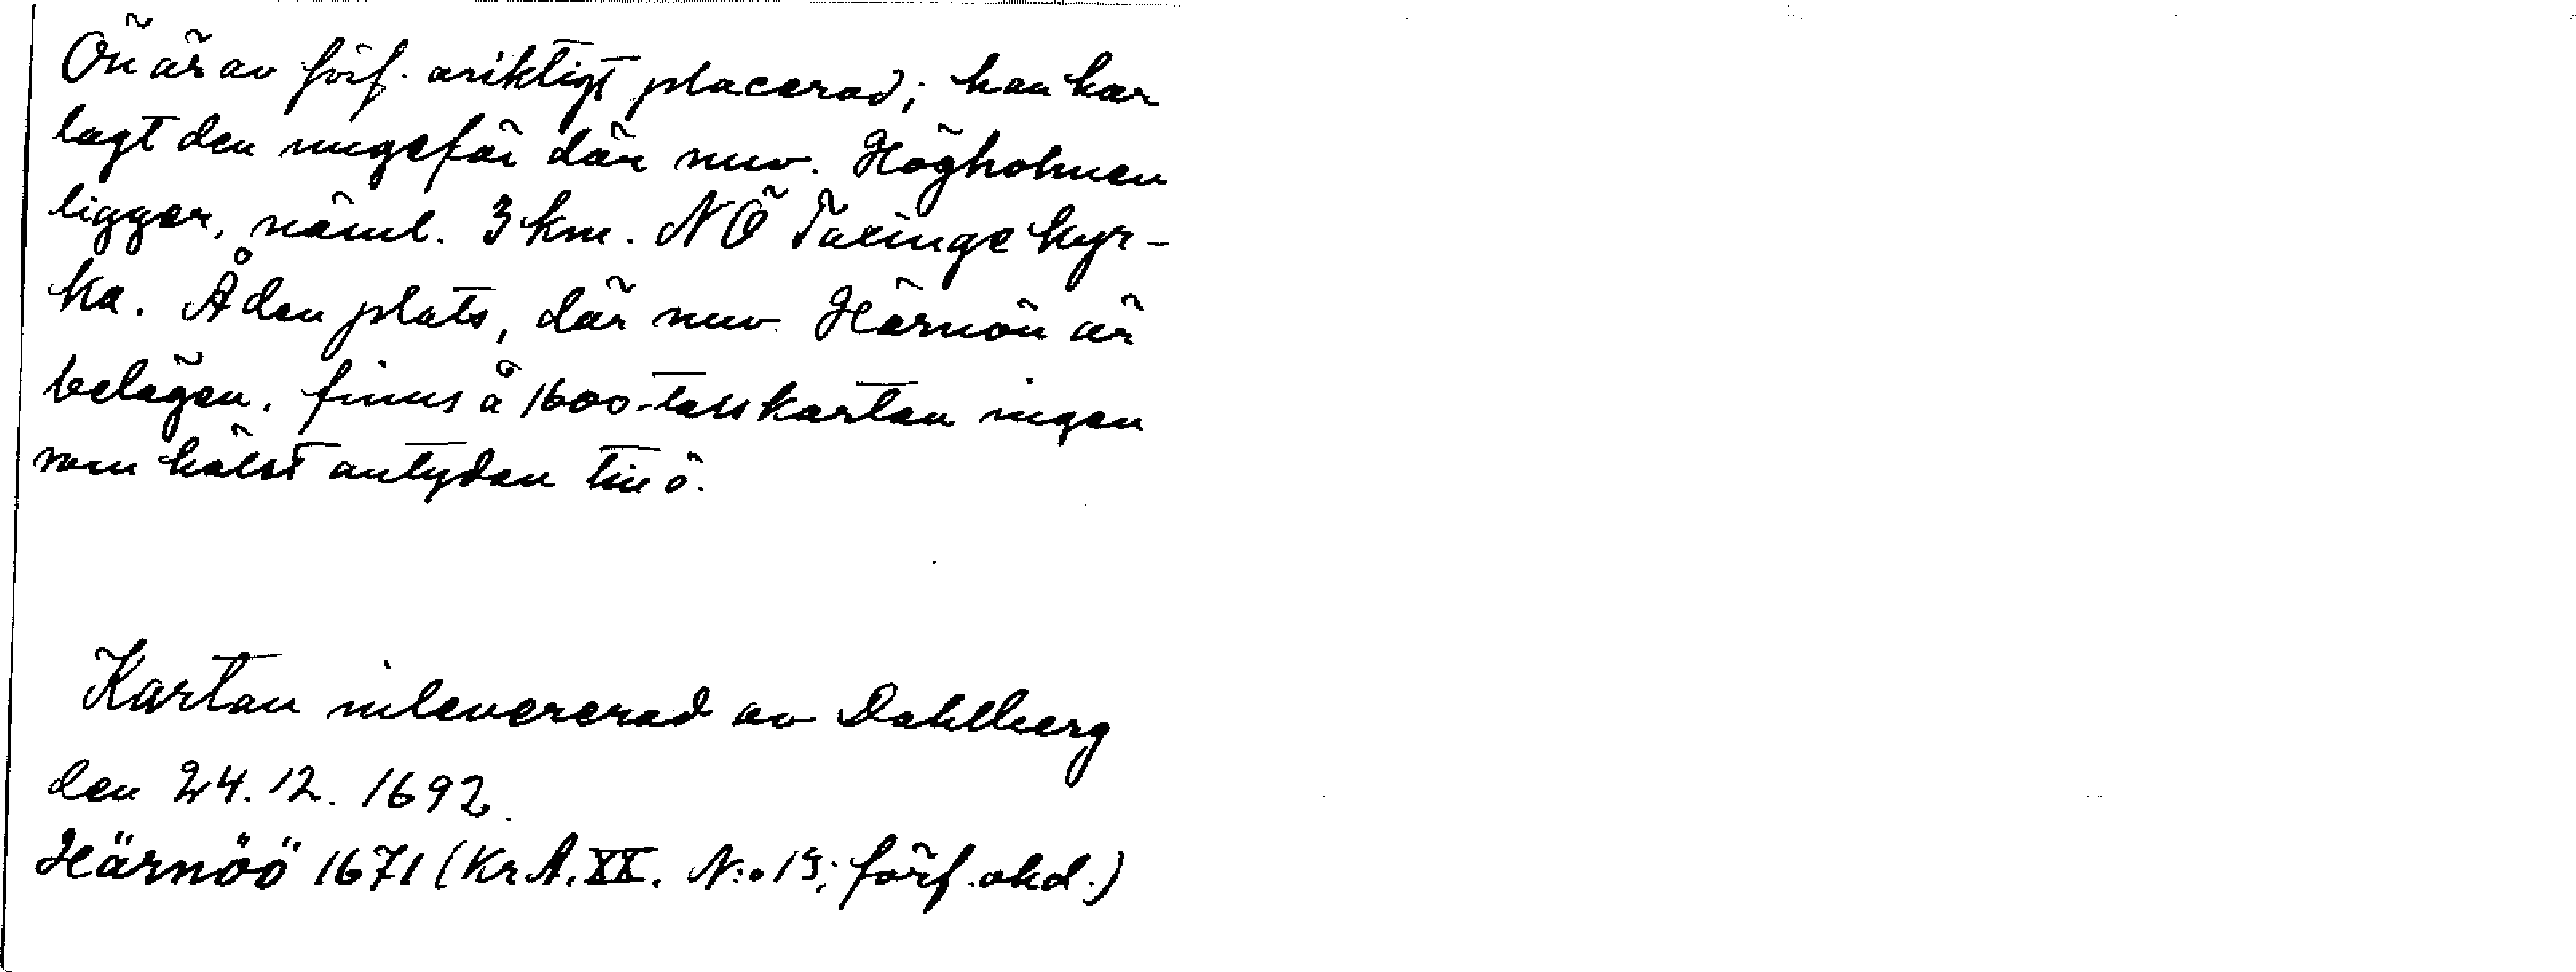 Ön är av förf. oriktigt placerad; han har
lagt den ungefär där nuv. Högholmen
ligger, näml. 3 km. NÖ Taxinge kyr-
ka. Å den plats, där nuv. Härnön är
belägen, finns å 1600-talskartan ingen
som hälst antydan till ö.
Kartan inlevererad av Dahlberg
den 24.12.1692.
Härnöö 1671 (Kr A. XX. N:o 15; förf. okd.)